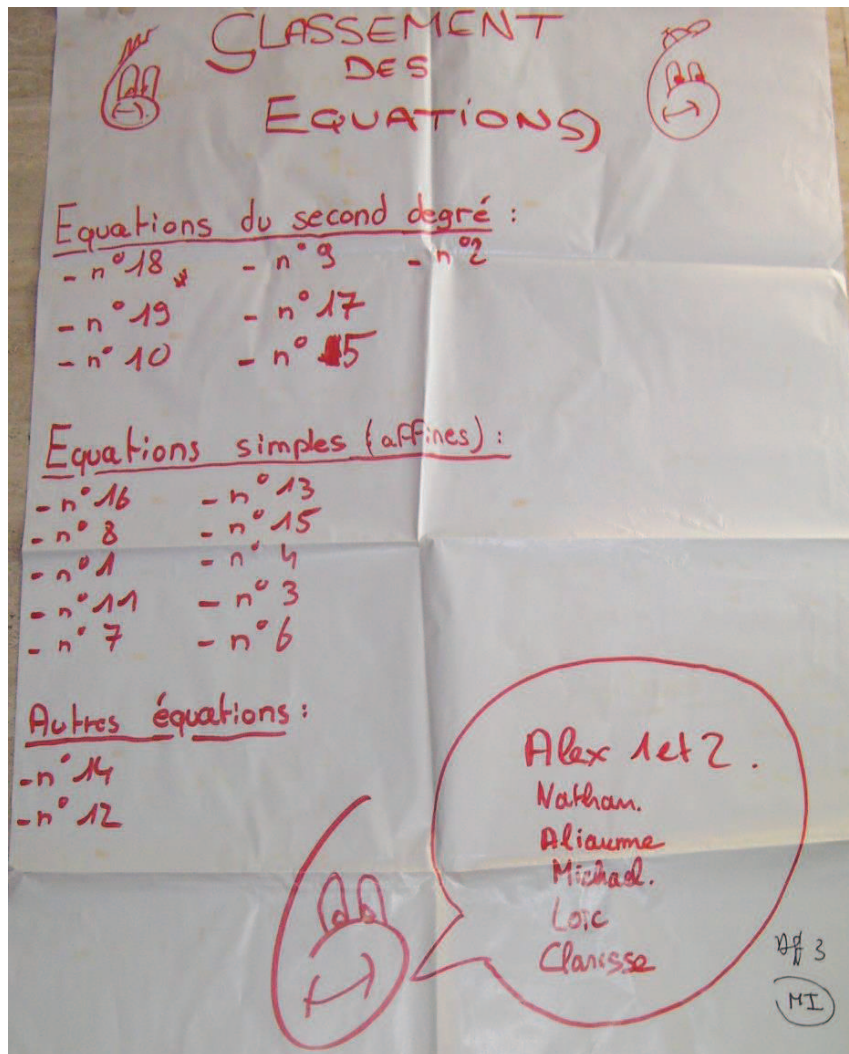 CLASSEMENT
DES
EQUATIONS
Equations du second degré :
- n° 18 - n° 9 - n° 2
- n° 19 - n° 17
- n° 10 - n° 5
Equations simples (affines) :
- n° 16 - n° 13
- n° 8 - n° 15
- n° 1 - n° 4
- n° 11 - n° 3
- n° 7 - n° 6
Autres équations :
- n° 14
- n° 12
Alex 1 et 2 .
Nathan.
Aliaume
Michael.
Loïc
Clarisse
3
MI